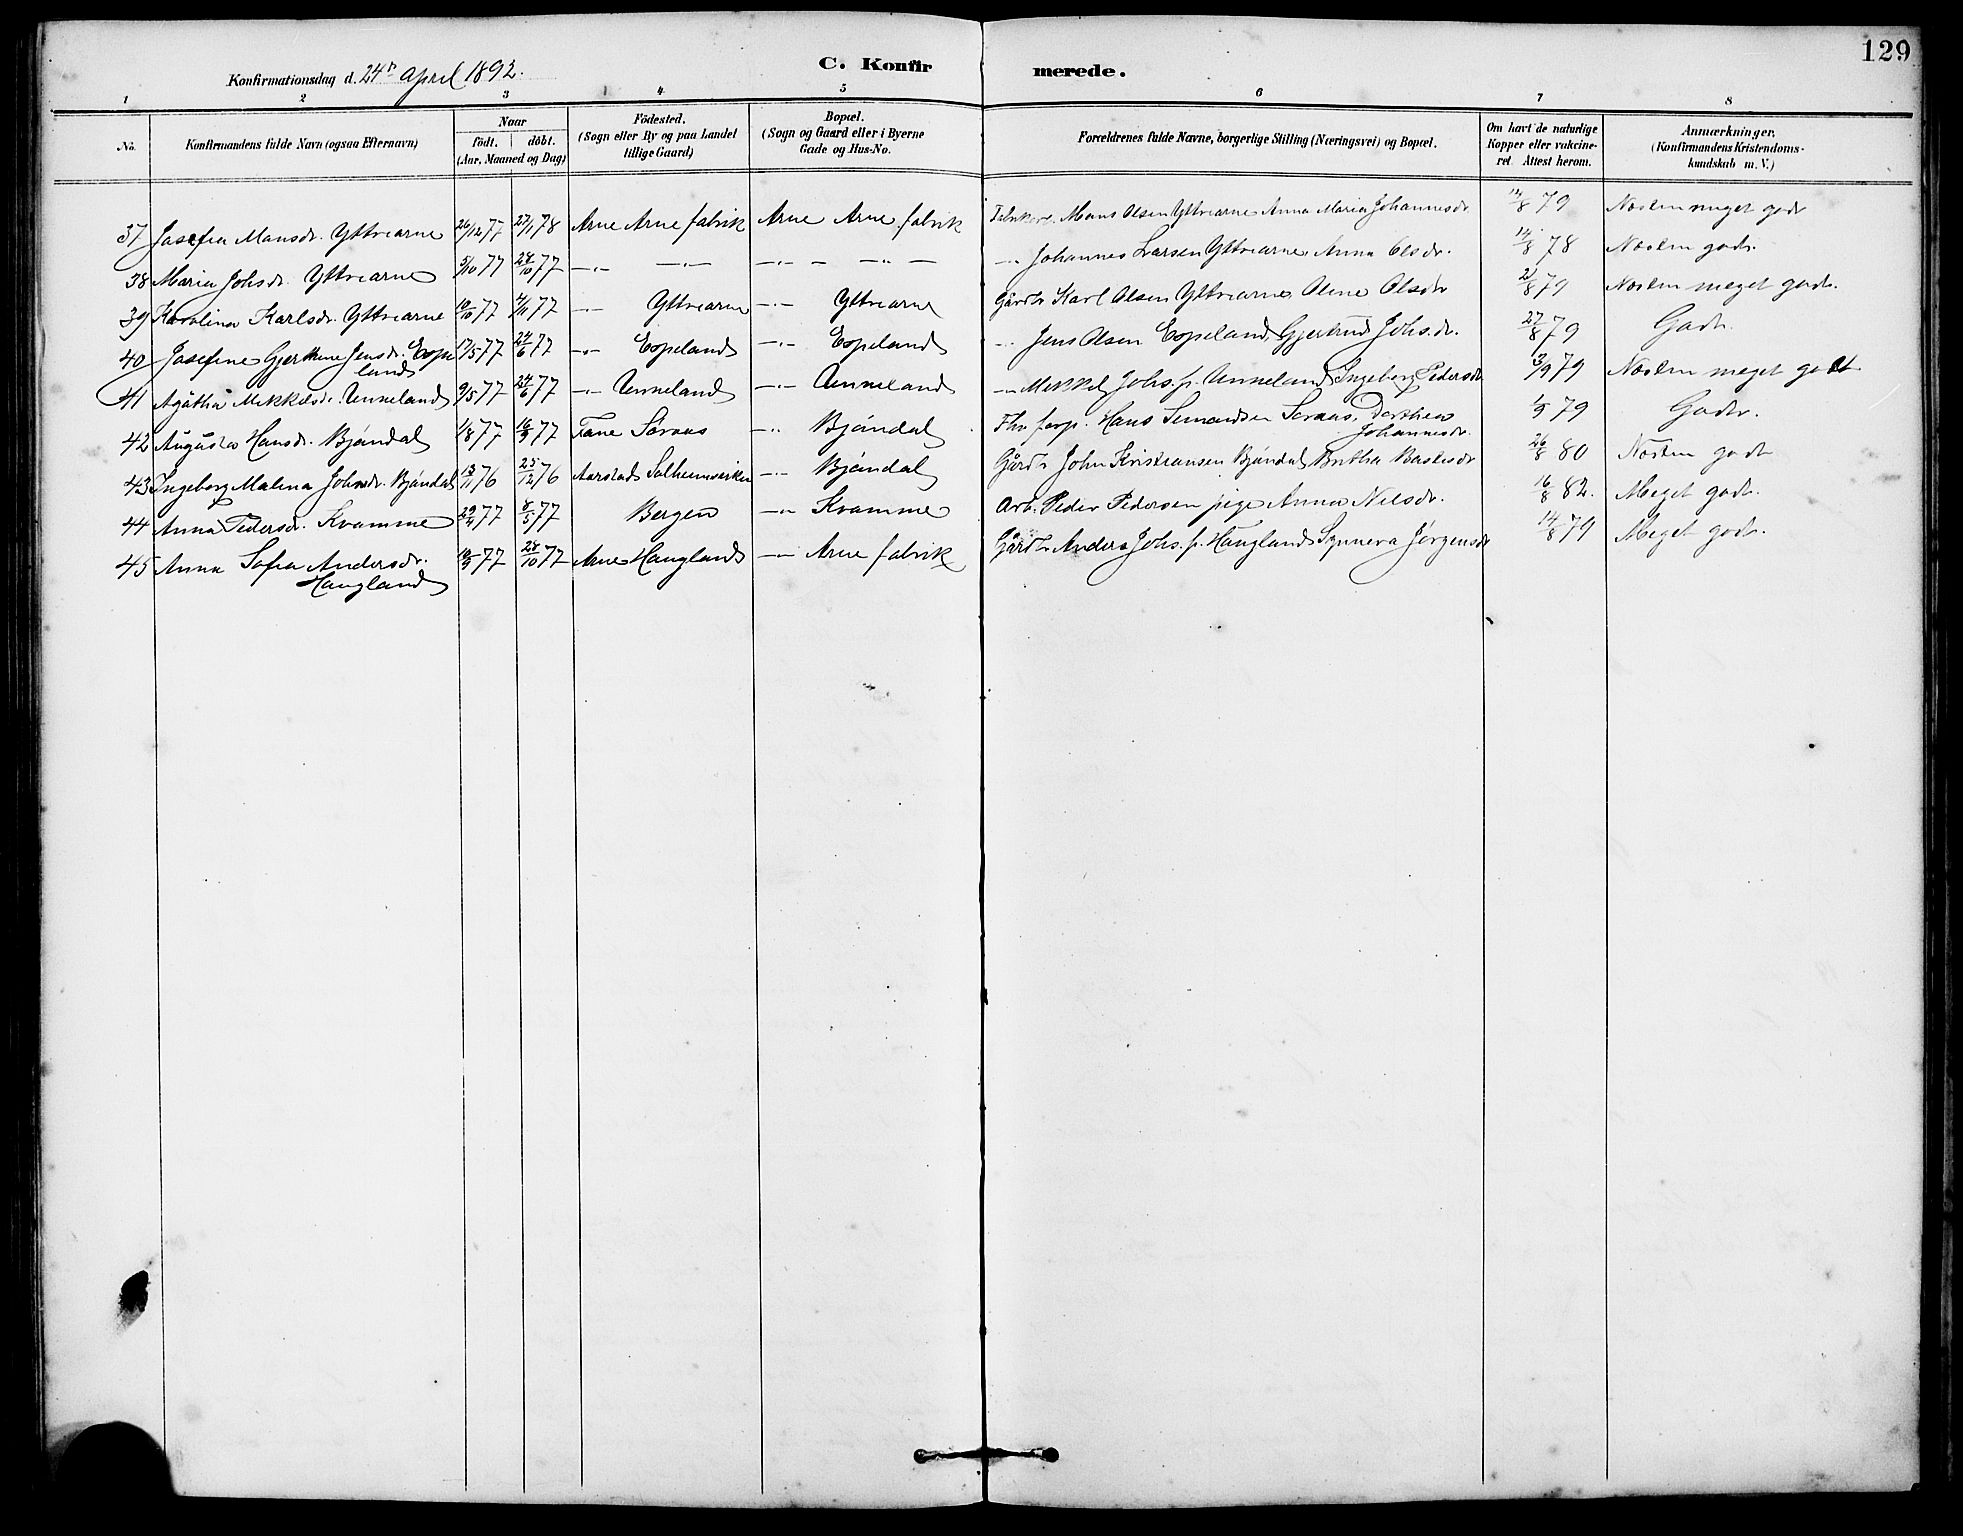 129
Konfirmationsdag d. 24de April 1892. C. Konfirmerede.
1 2 3 4 5 6 7 8
No. Konfirmandens fulde Navn (ogsaa Efternavn) Naar födt. döbt. (Aar, Maaned og Dag) Födested. (Sogn eller By og paa Landet tillige Gaard) Bopæl. (Sogn og Gaard eller i Byerne Gade og Hus-No. Forældrenes fulde Navne, borgerlige Stilling (Næringsvei) og Bopæl. Om havt de naturlige Kopper eller vakcineret. Attest herom. Anmærkninger. (Konfirmandens Kristendomskundskab m. V.)
37 Josefea Monsdr. Yttrearne 26/12 77 27/1 78 Arne Arne fabrik Arne Arne fabrik Mons Olsen Yttrearne Anna Maria Johannesdr 14/8 79 Næsten meget godt
38 Maria Johsdr. Yttrearne 5/10 77 28/10 77 —„— —„— —„— — —„— —„— Johannes Larsen Yttrearne, Anna Olsdr. 14/8 78 Næsten godt.
39 Karolina Karlsdr. Yttrearne 10/10 77 4/11 77 —„— Yttrearne —„— Yttrearne Gårdbr Karl Olsen Yttrearne, Oline Olsdr 2/8 79 Næsten meget godt.
40 Josefine Gjertine Jensdr. Espeland 17/5 77 24/6 77 —„— Espeland —„— Espeland —„— Jens Olsen Espeland, Gjertrud Johs.dr. 27/8 79 Godt.
41 Agåtha Mikkelsdr. Unneland 9/5 77 24/6 77 —„— Unneland —„— Unneland —„— Mikkel Johs. p. Unneland Ingeborg Pedersdr 3/9 79 Næsten meget godt
42 Augusta Hansdr. Bjöndal 1/8 77 16/9 77 Fane Söraas —„— Bjöndal Fhv forp. Hans Simondsen Soraas, Dorthea Johannesdr. 1/9 79 Godt.
43 Ingeborg Malena Johndr. Bjöndal 13/11 76 25/12 76 Aarstad Solheimsviken —„— Bjöndal Gårdbr John Kristiansen Bjöndal Britha 26/8 80 Næsten godt
44 Anna Pedersdr. Kvamme 29/4 77 8/5 77 Bergen —„— Kvamme Arb. Peder Pedersen pige Anna Nilsdr. 16/8 82. Meget godt.
45 Anna Sofia Andersdr. Haugland 10/9 77 28/10 77 Arne Haugland —„— Arne fabrik Gårdbr Anders Johs. p. Haugland Synneva Jørgensdr 14/8 79 Meget godt.